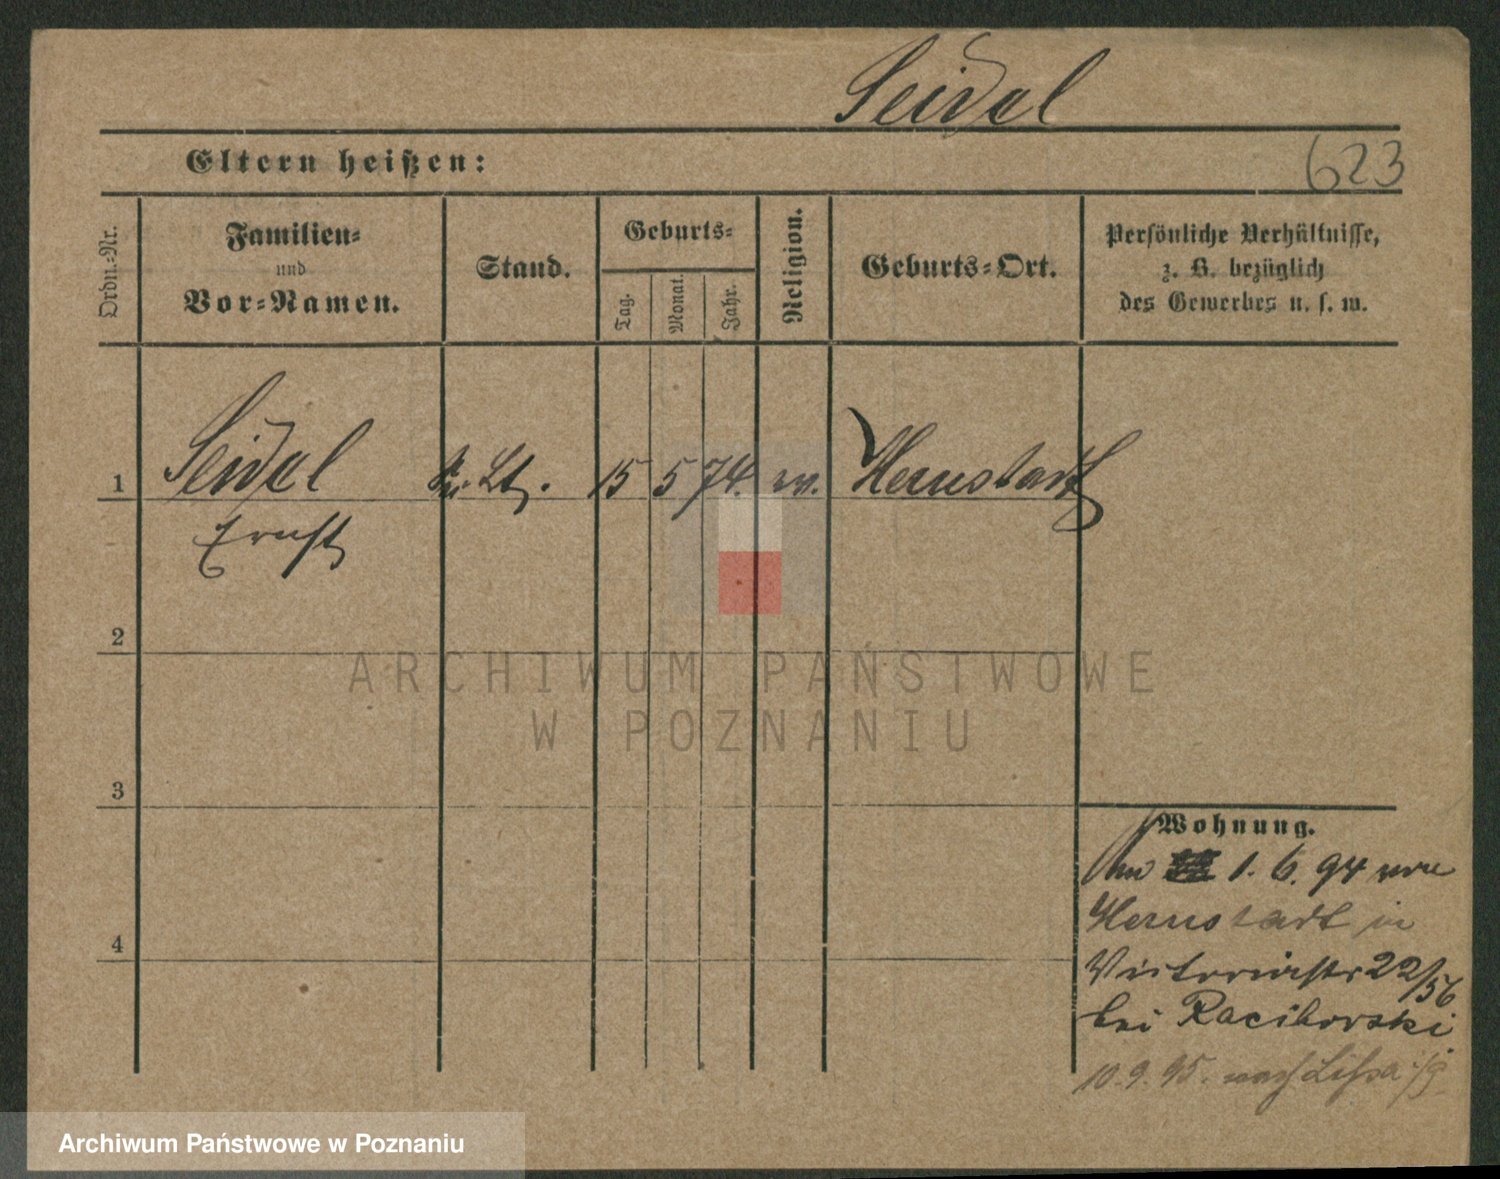 Seidel
Eltern heißen:
623
Ordn.-Nr.
Familien-
und
Vor-Namen.
Stand.
Geburts-
Tag.
Monat.
Jahr.
Religion.
Geburts-Ort.
Persönliche Verhältnisse,
z. B. bezüglich
des Gewerbes u. s. w.
1
Seidel
Lt.
15
5
74.
ev.
Herrnstadt
Ernst
2
ARCHIWUM PAŃSTWOWE
W POZNANIU
3
Wohnung.
1. 6. 94 von
Herrnstadt in
Victoriastr 22/56
bei Raciborski
10. 9. 95. nach Lissa i/P.
4
Archiwum Państwowe w Poznaniu